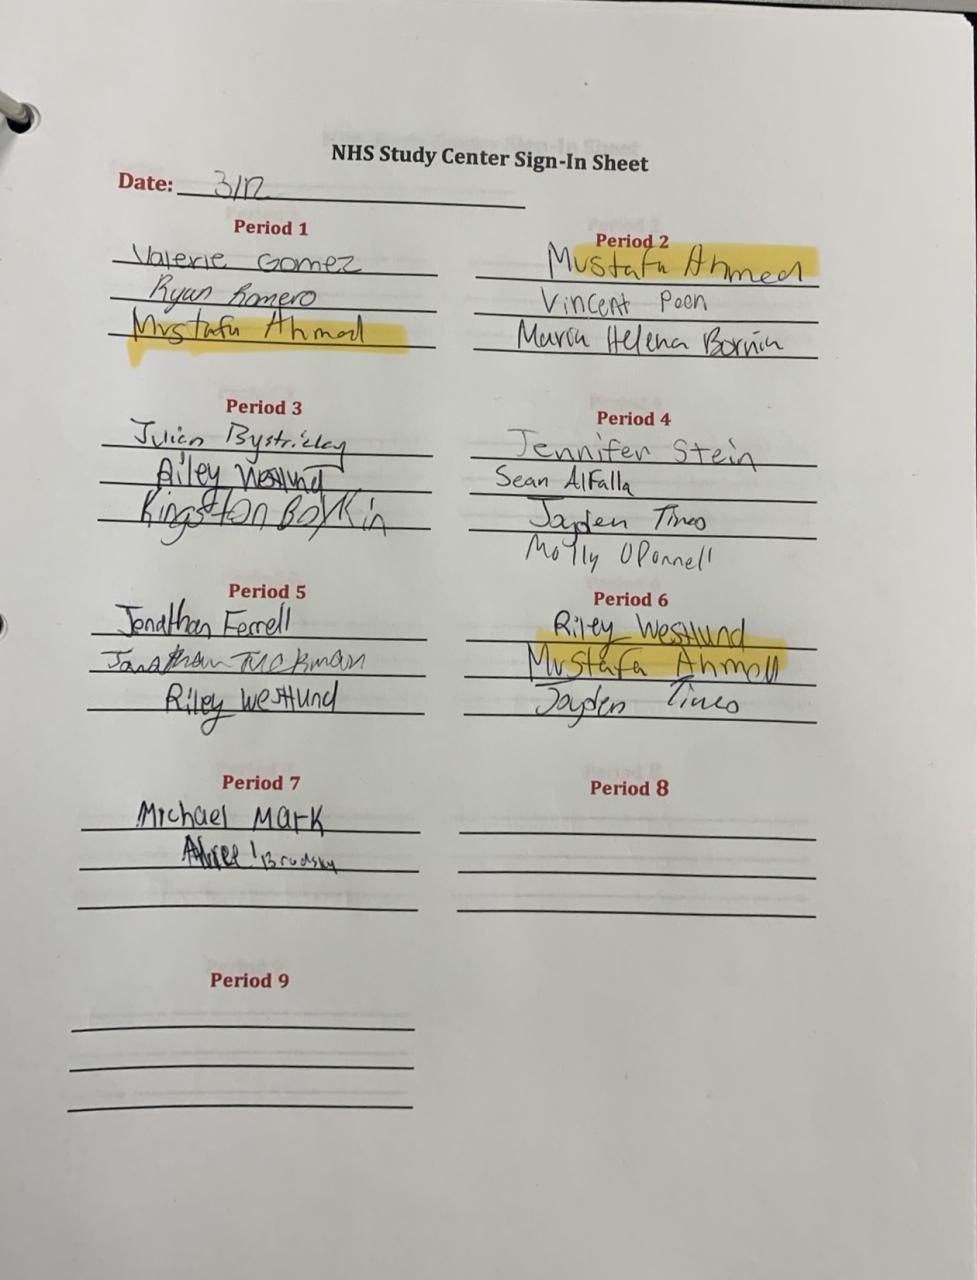 NHS Study Center Sign-In Sheet
Date: 3/12
Period 1
Valerie Gomez
Ryan Romero
Mustafa Ahmed
Period 2
Mustafa Ahmed
Vincent Poon
Maria Helena
Period 3
Julian
Riley Westlund
Kingston Boykin
Period 4
Jennifer Stein
Sean AlFalla
Jayden Tineo
Molly ODonnell
Period 5
Jonathan Ferrell
Jonathan Tuckman
Riley Westlund
Period 6
Riley Westlund
Mustafa Ahmed
Jayden Tineo
Period 7
Michael Mark
Brodsky
Period 8
Period 9